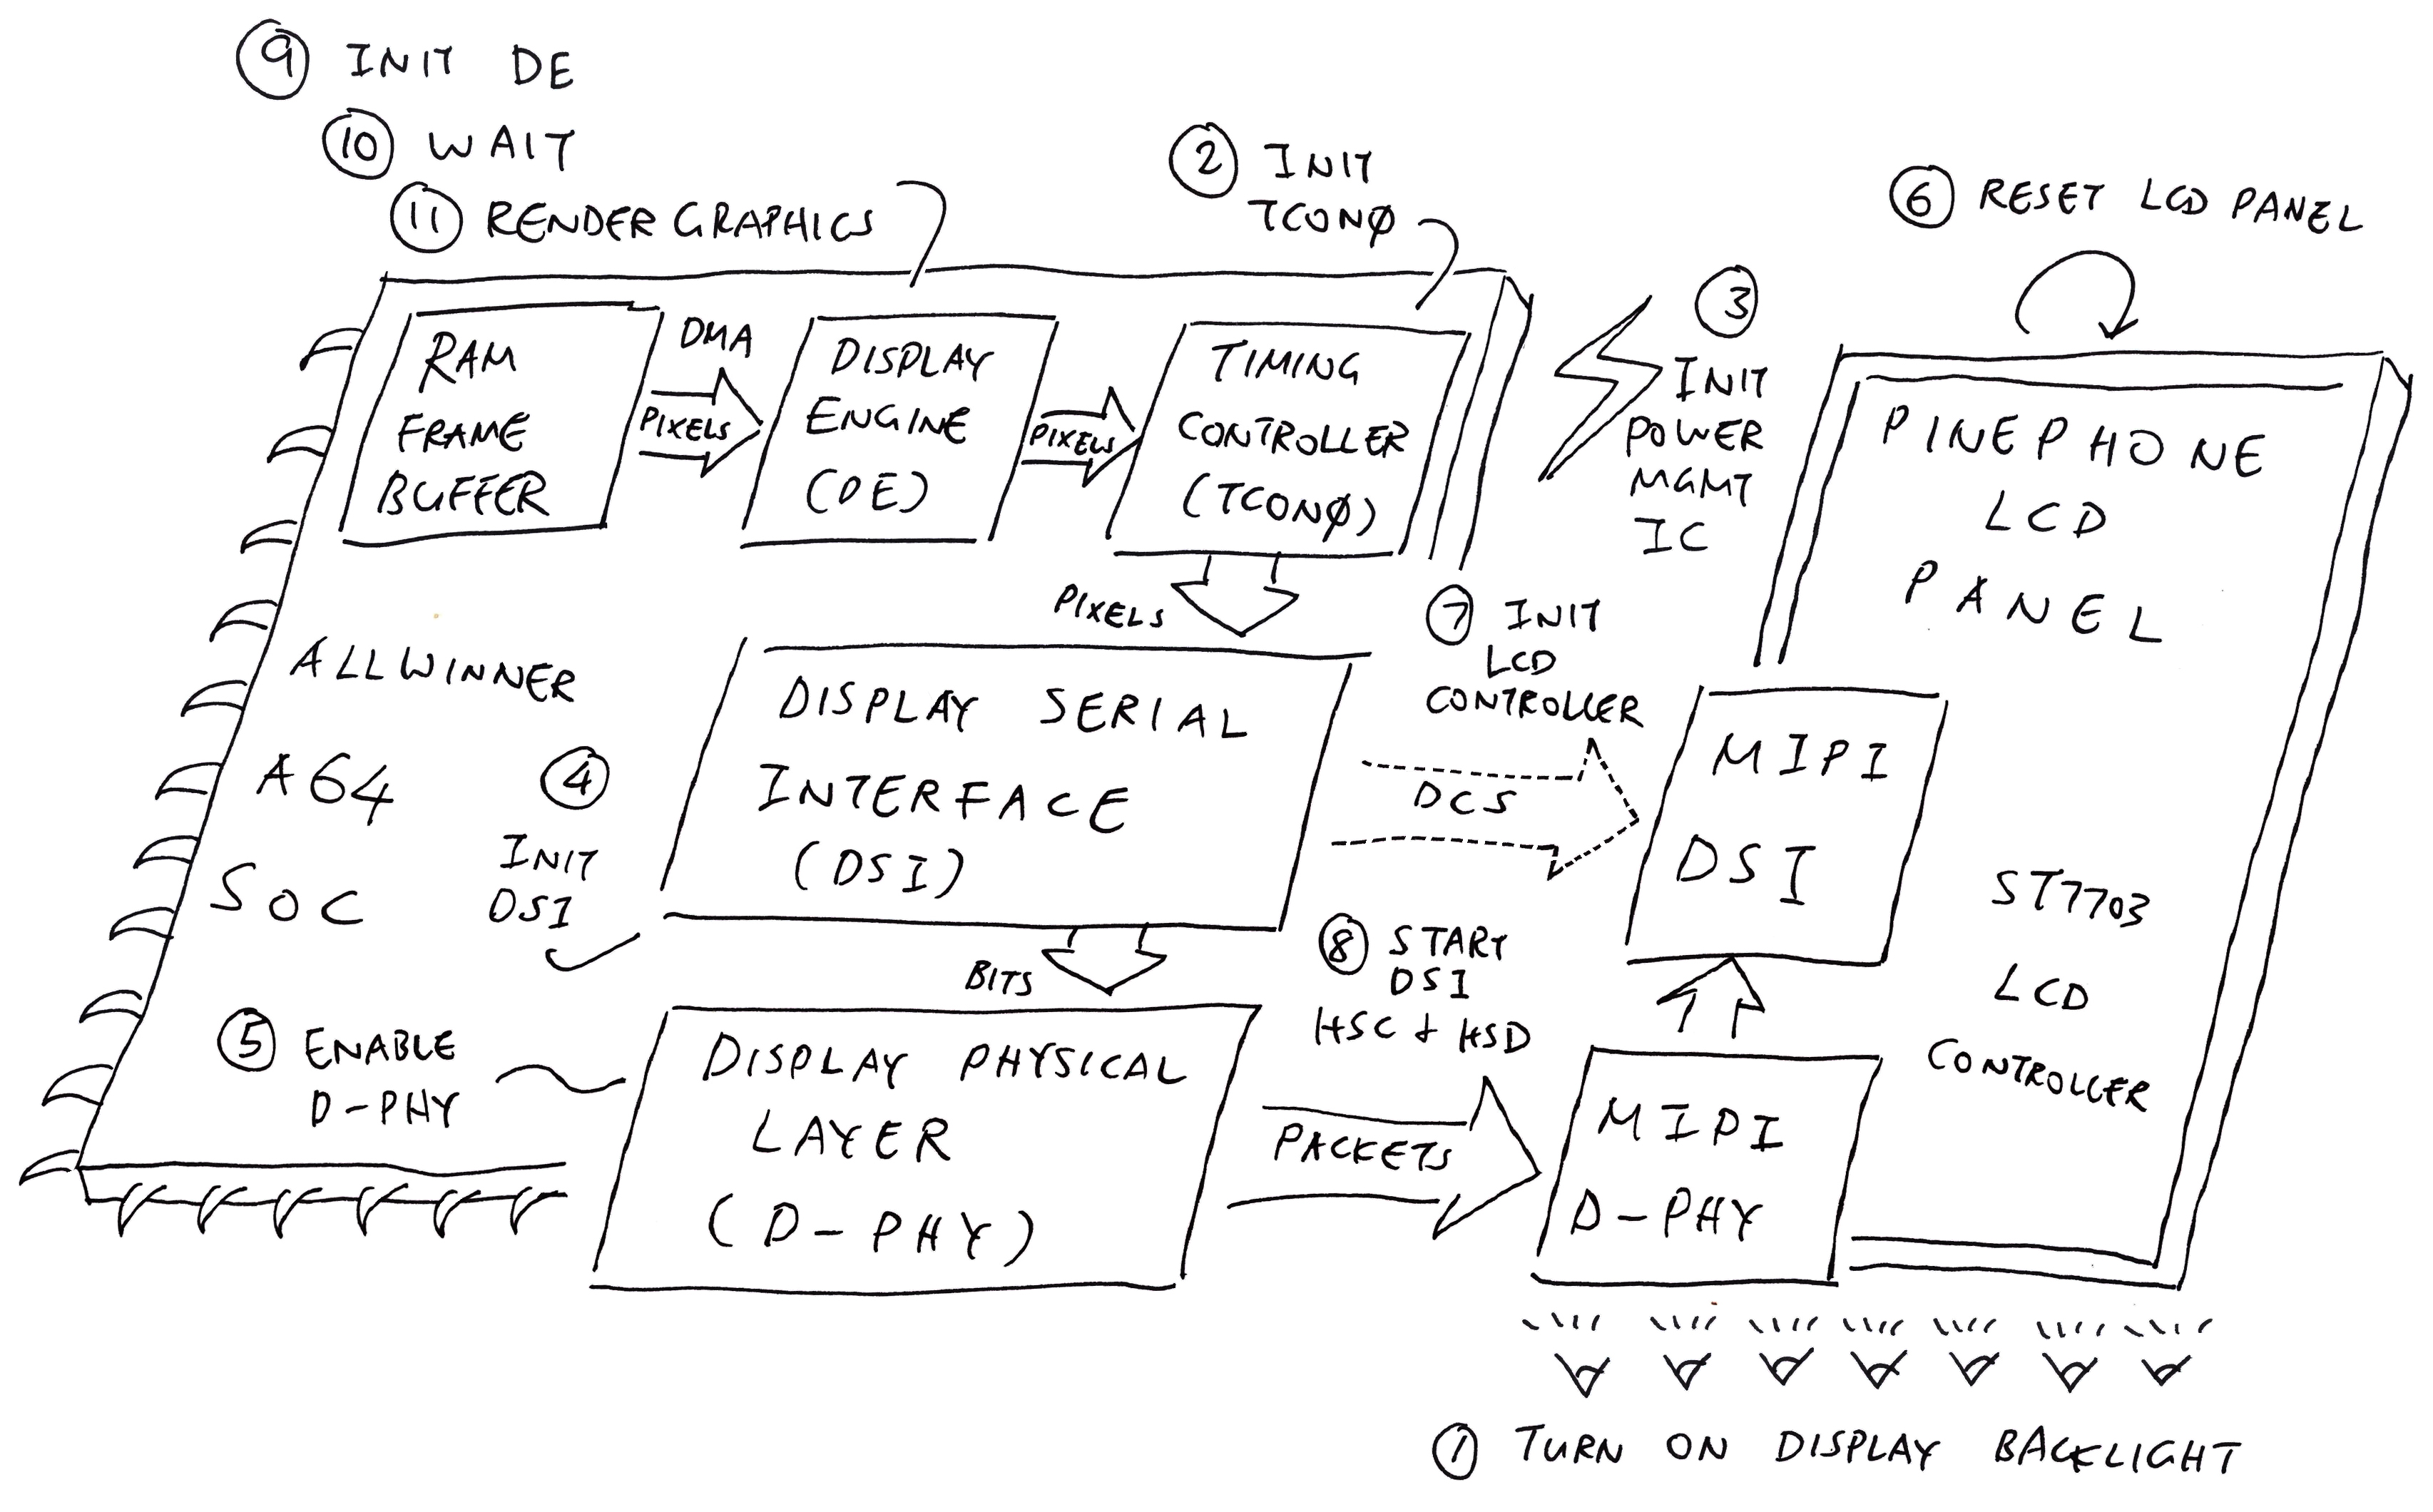 9 INIT DE
10 WAIT
11 RENDER GRAPHICS
2 INIT
TCON0
6 RESET LCD PANEL
3
INIT
POWER
MGMT
IC
RAM
FRAME
BUFFER
DMA
PIXELS
DISPLAY
ENGINE
(DE)
PIXELS
TIMING
CONTROLLER
(TCON0)
PIXELS
PINEPHONE
LCD
PANEL
ALLWINNER
A64
SOC
4
INIT
DSI
DISPLAY SERIAL
INTERFACE
(DSI)
7 INIT
LCD
CONTROLLER
DCS
MIPI
DSI
ST7703
LCD
CONTROLLER
BITS
5 ENABLE
D-PHY
DISPLAY PHYSICAL
LAYER
(D-PHY)
8 START
DSI
HSC + HSD
PACKETS
MIPI
D-PHY
1 TURN ON DISPLAY BACKLIGHT